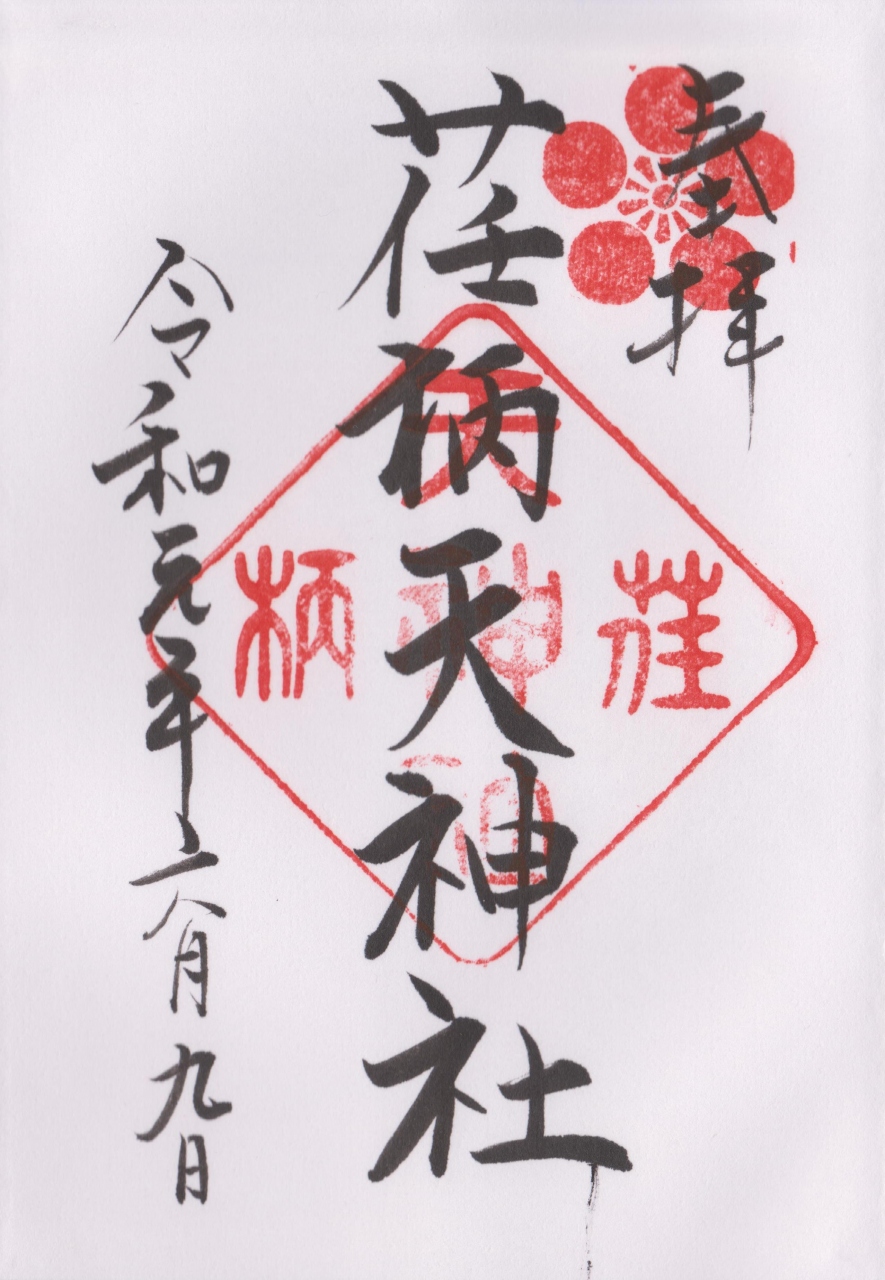 奉拝
荏柄天神社
令和元年六月九日
荏
天神
柄